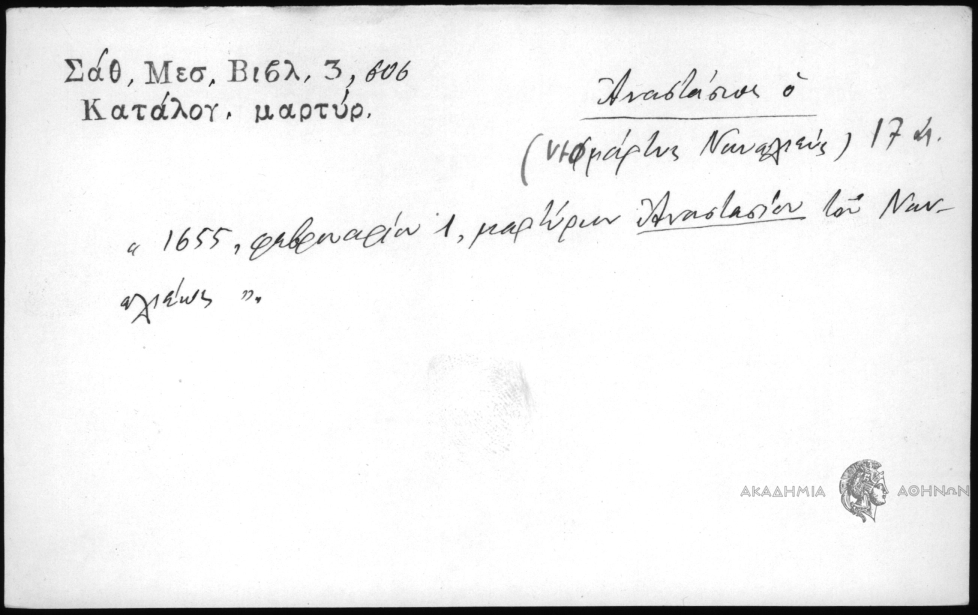 Σάθ. Μεσ. Βιβλ. 3, 606
Κατάλογ. μαρτύρ.
Ἀναστάσιος ὁ
(νεομάρτυς Ναυπλιεύς) 17 αἰ.
" 1655, φεβρουαρίου 1, μαρτύριον Ἀναστασίου τοῦ Ναυ-
πλιέως ".
ΑΚΑΔΗΜΙΑ ΑΘΗΝΩΝ